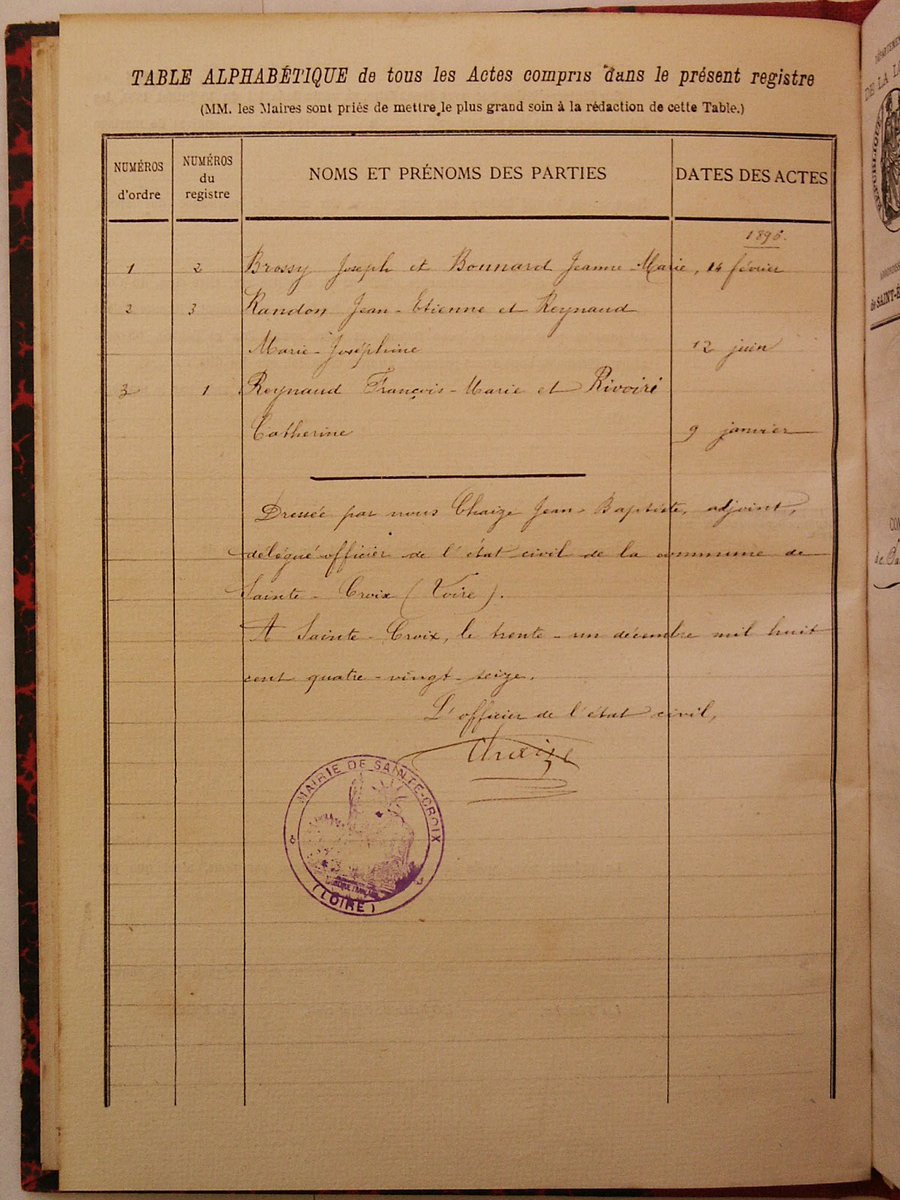 TABLE ALPHABÉTIQUE de tous les Actes compris dans le présent registre
(MM. les Maires sont priés de mettre le plus grand soin à la rédaction de cette Table.)
NUMÉROS d'ordre
NUMÉROS du registre
NOMS ET PRÉNOMS DES PARTIES
DATES DES ACTES
1896.
1 2 Brossy Joseph et Bonnard Jeanne-Marie, 14 février
2 3 Randon Jean-Etienne et Reynaud
Marie-Joséphine 12 juin
3 1 Reynaud François-Marie et Rivoiré
Catherine 9 janvier
Dressée par nous Chaize Jean-Baptiste, adjoint,
délégué officier de l'état civil de la commune de
Sainte-Croix (Loire).
A Sainte-Croix, le trente-un décembre mil huit
cent quatre-vingt-seize.
L'officier de l'état civil,
Chaize
MAIRIE DE SAINTE-CROIX
(LOIRE)
DE LA
RÉPUBLIQUE